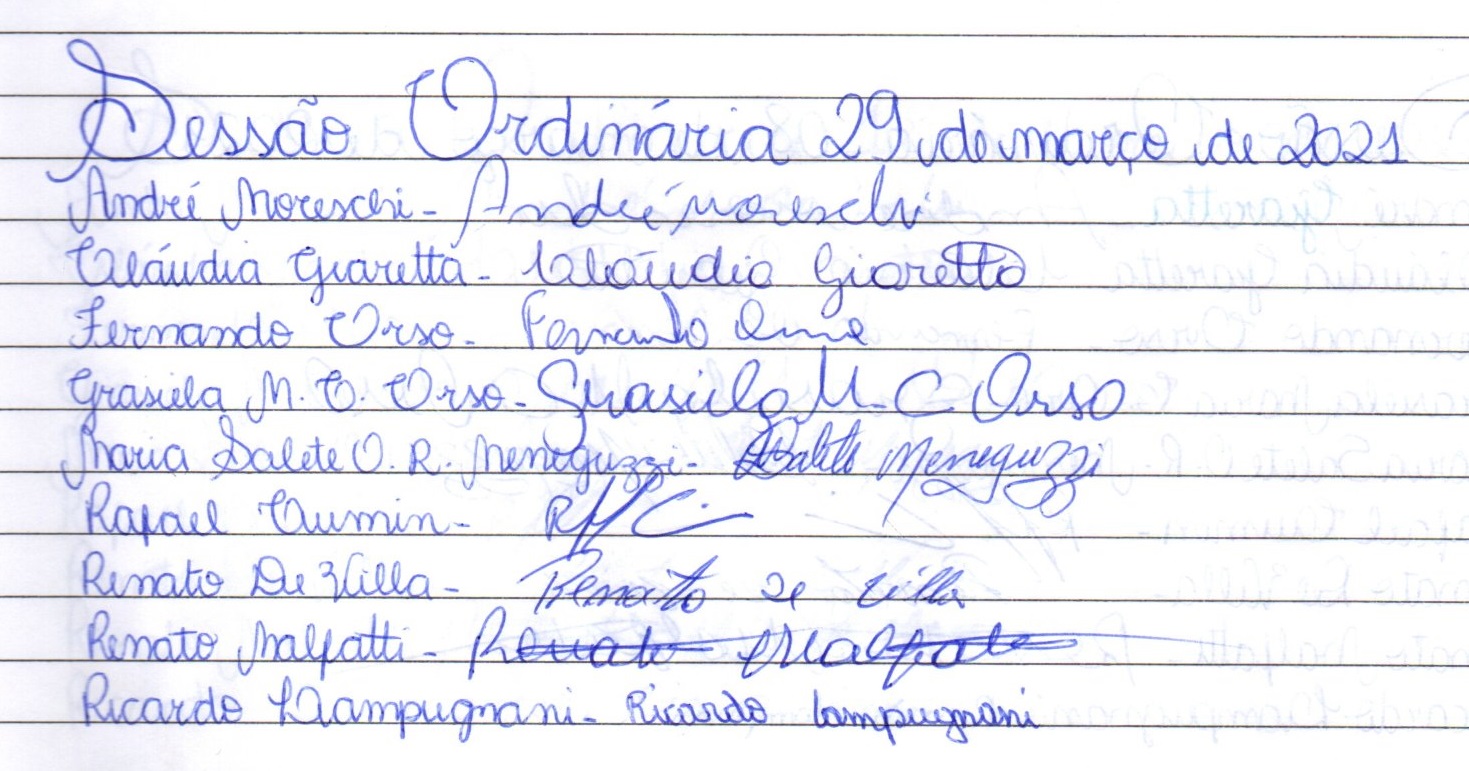 Sessão Ordinária 29 de março de 2021
André Moreschi - André Moreschi
Cláudia Giaretta - Cláudia Giaretta
Fernando Orso - Fernando Orso
Grasiela M. C. Orso - Grasiela M. C Orso
Maria Salete O. R. Meneguzzi - Salete Meneguzzi
Rafael Cumin -
Renato De Villa - Renato De Villa
Renato Malfatti - Renato Malfatti
Ricardo Lampugnani - Ricardo Lampugnani